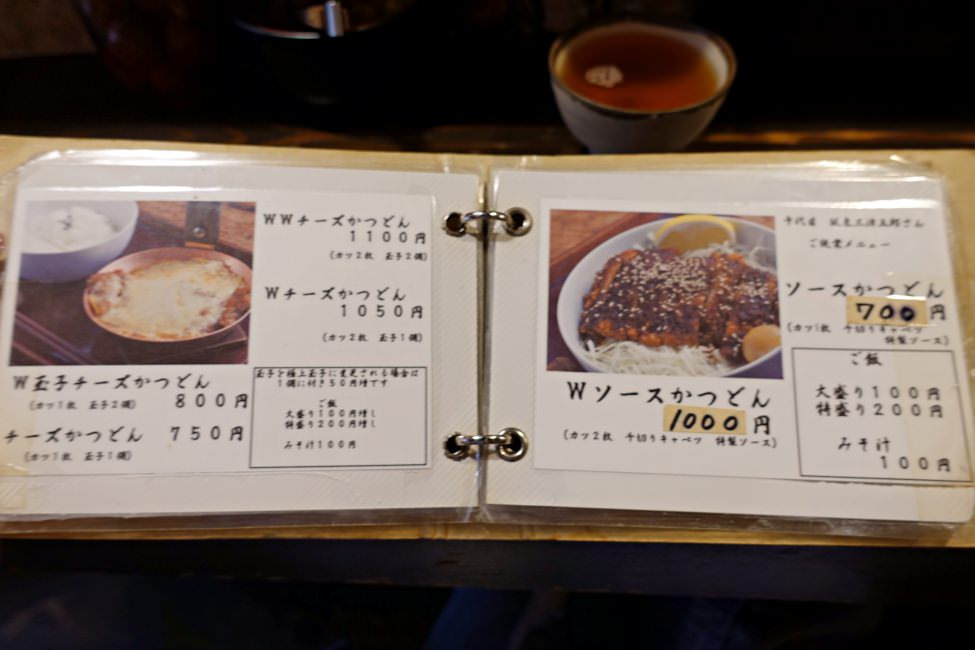 WWチーズかつどん
1100円
(カツ2枚 玉子2個)
Wチーズかつどん
1050円
(カツ2枚 玉子1個)
W玉子チーズかつどん
(カツ1枚 玉子2個) 800円
チーズかつどん 750円
(カツ1枚 玉子1個)
玉子を極上玉子に変更される場合は
1個に付き50円増です
ご飯
大盛り100円増し
特盛り200円増し
みそ汁100円
千代田
さん
ご提案メニュー
ソースかつどん
700円
(カツ1枚 千切りキャベツ
特製ソース)
Wソースかつどん
1000円
(カツ2枚 千切りキャベツ 特製ソース)
ご飯
大盛り100円
特盛り200円
みそ汁
100円